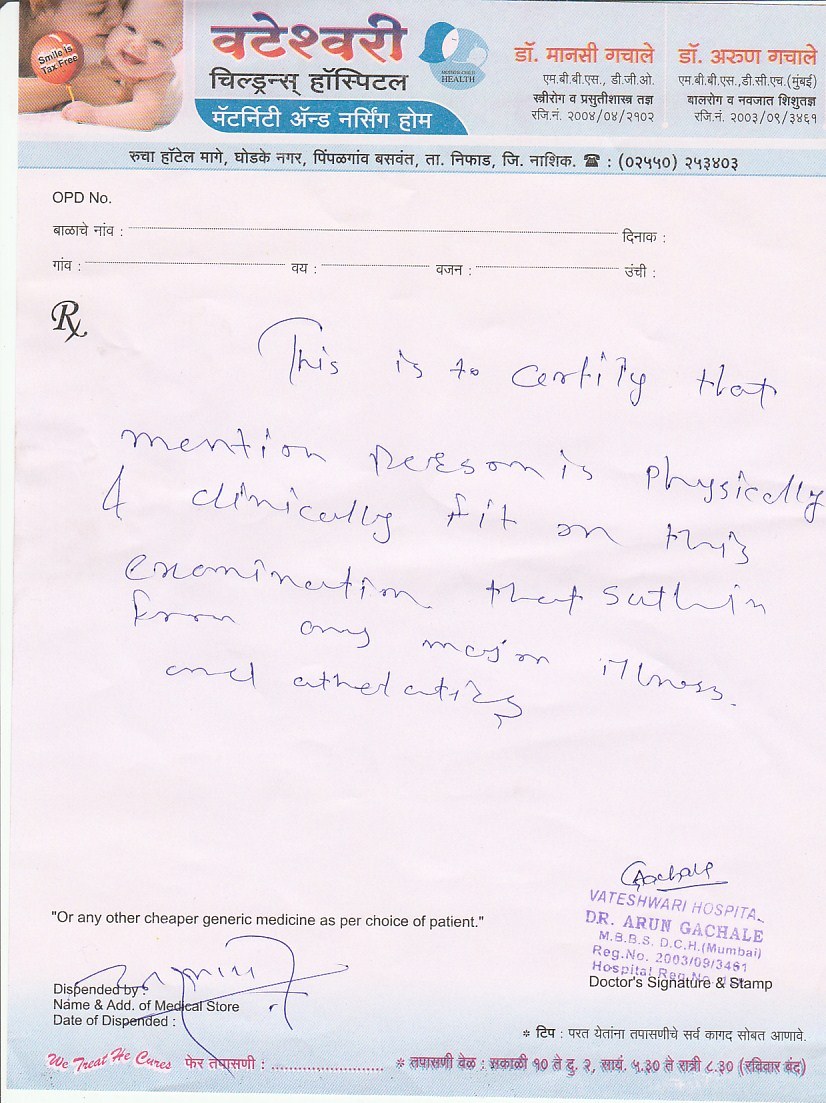 Smile is
Tax Free
वटेश्वरी
चिल्ड्रन्स् हॉस्पिटल
मॅटर्निटी ॲन्ड नर्सिंग होम
MOTHER CHILD
HEALTH
डॉ. मानसी गचाले
एम.बी.बी.एस., डी.जी.ओ.
स्त्रीरोग व प्रसुतीशास्त्र तज्ञ
रजि.नं. २००४/०४/२१०२
डॉ. अरुण गचाले
एम.बी.बी.एस.,डी.सी.एच.(मुंबई)
बालरोग व नवजात शिशुतज्ञ
रजि.नं. २००३/०९/३४६१
रुचा हॉटेल मागे, घोडके नगर, पिंपळगांव बसवंत, ता. निफाड, जि. नाशिक. ☎ : (०२५५०) २५३४०३
OPD No.
बाळाचे नांव : दिनाक :
गांव : वय : वजन : उंची :
Rx
This is to certify that
mention person is physically
& clinically fit on this
examination that
from any major illness.
and
Gachale
VATESHWARI HOSPITAL
DR. ARUN GACHALE
M.B.B.S. D.C.H.(Mumbai)
Reg.No. 2003/09/3461
Hospital Reg.No.
Doctor's Signature & Stamp
"Or any other cheaper generic medicine as per choice of patient."
Dispended by :
Name & Add. of Medical Store
Date of Dispended :
* टिप : परत येतांना तपासणीचे सर्व कागद सोबत आणावे.
We Treat He Cures फेर तपासणी : ........................ * तपासणी वेळ : सकाळी १० ते दु. २, सायं. ५.३० ते रात्री ८.३० (रविवार बंद)